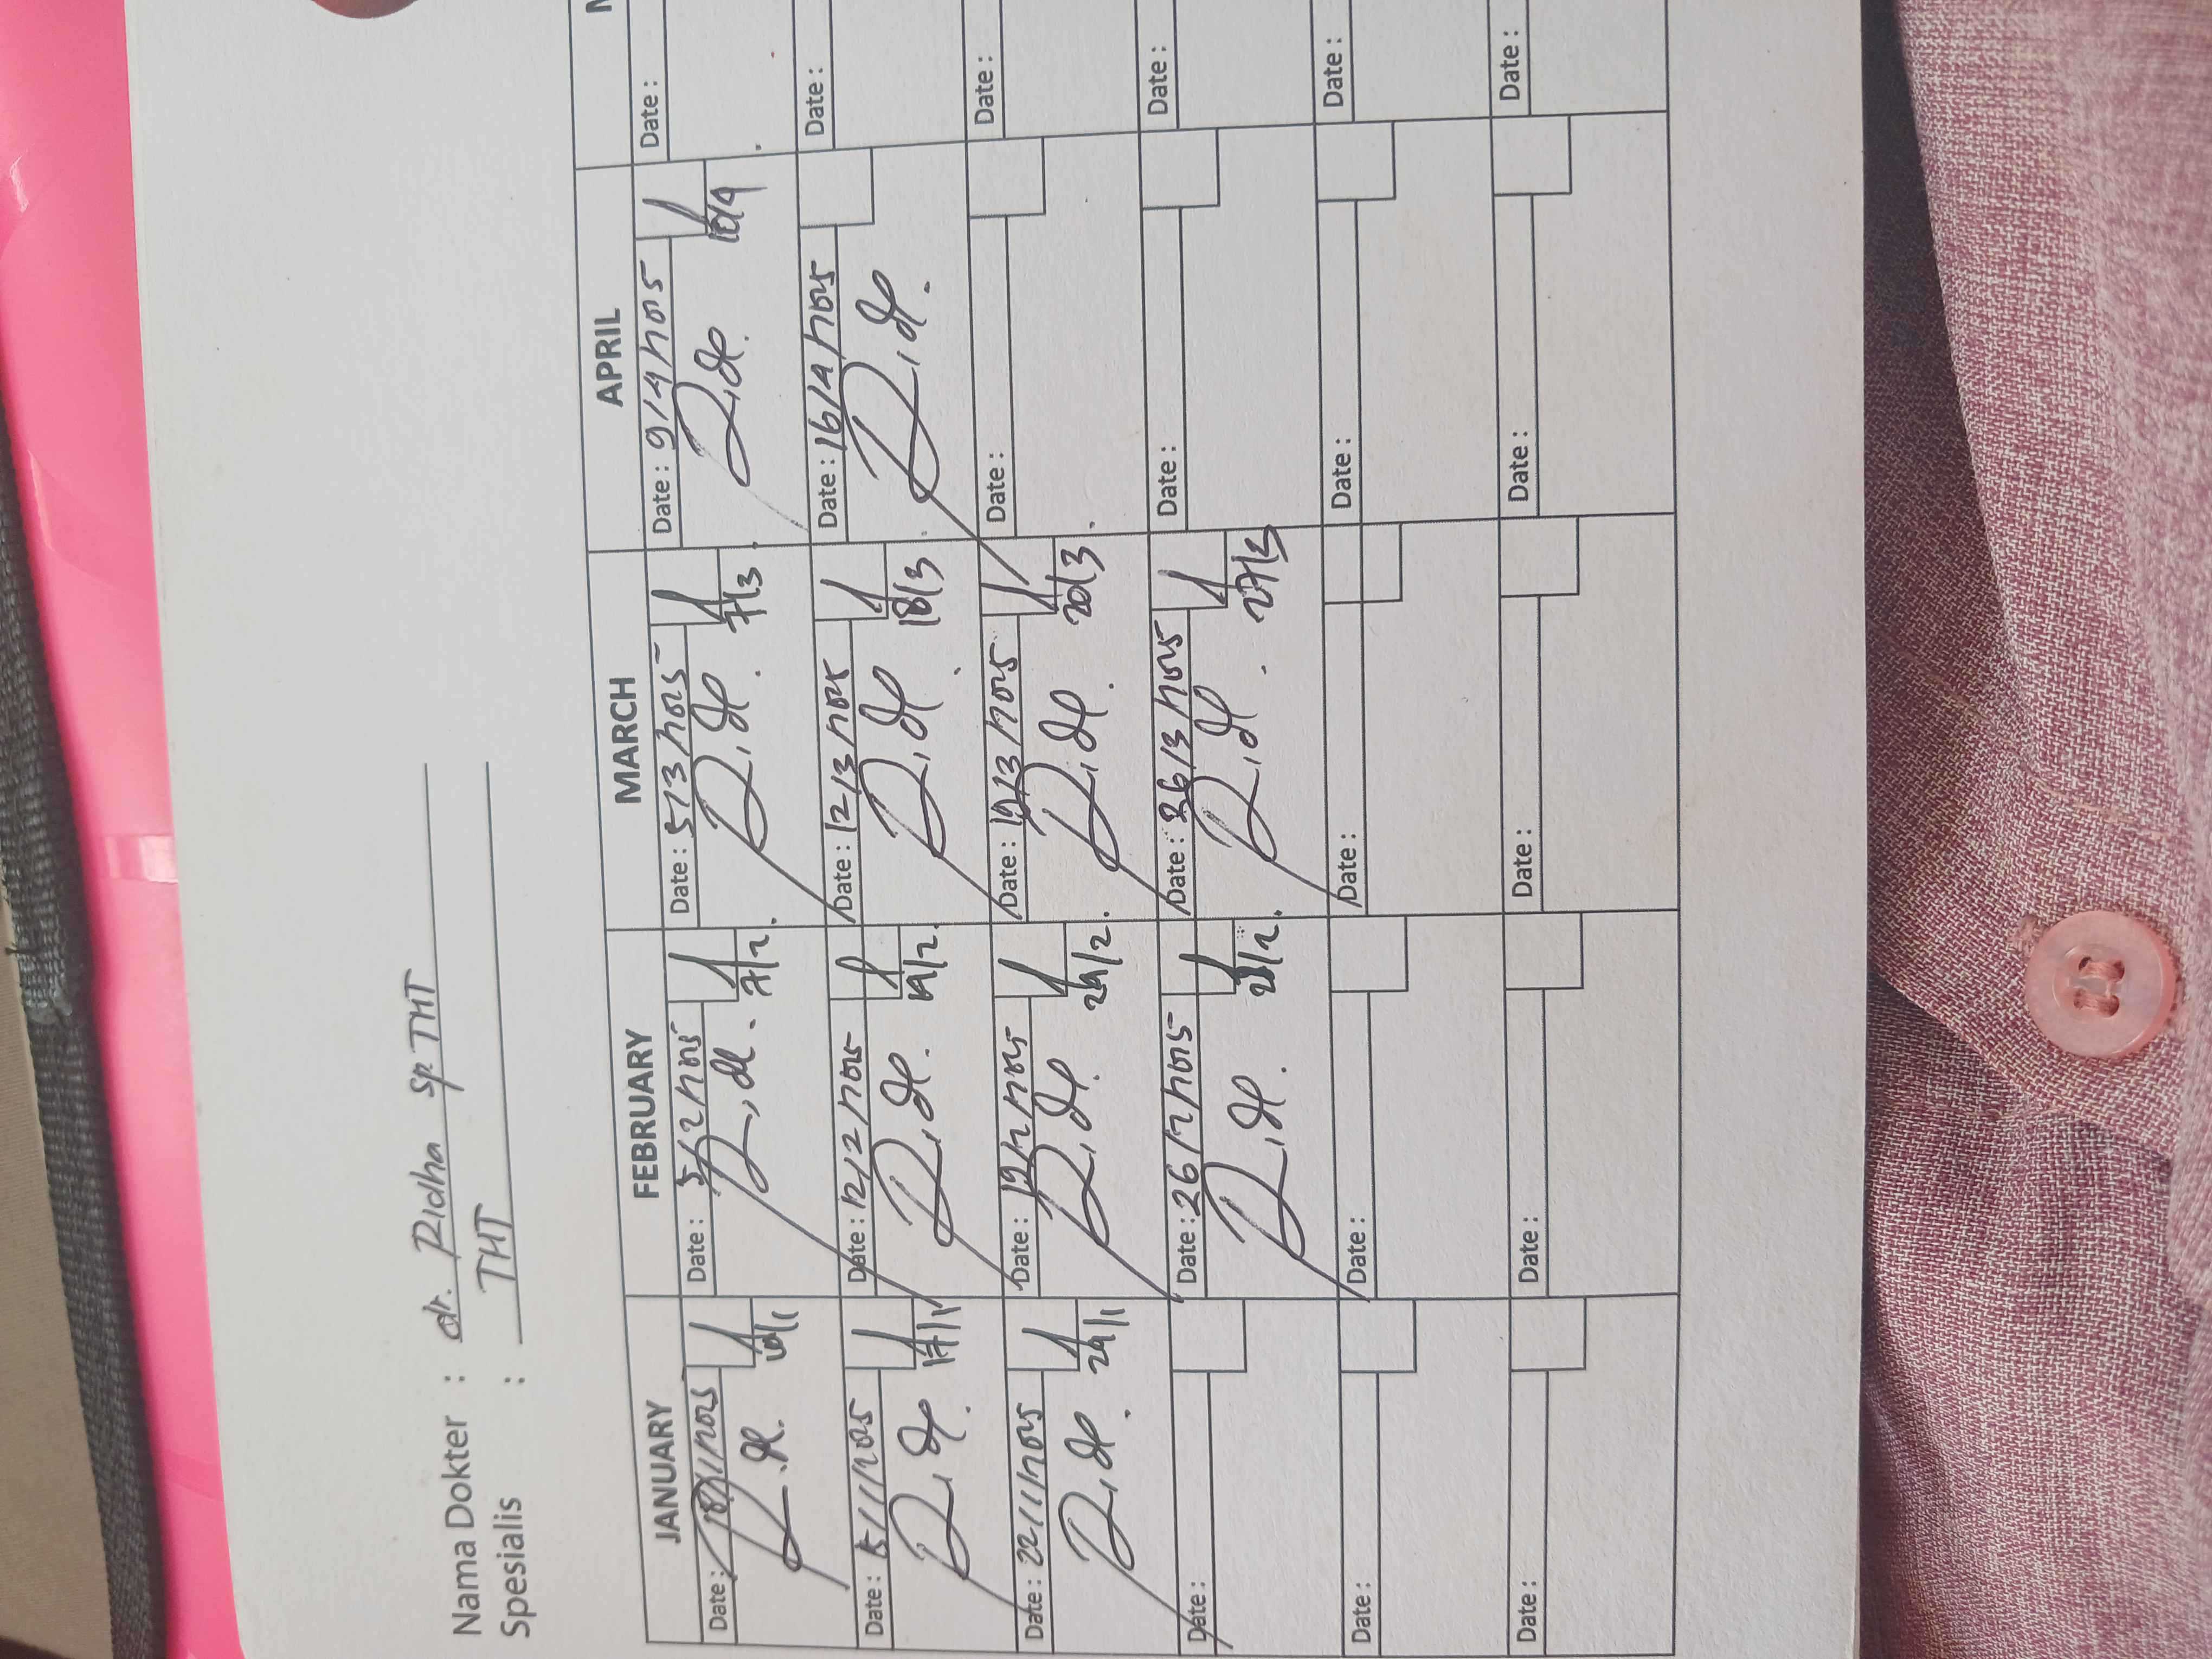 Nama Dokter : dr. Ridha Sp. THT
Spesialis : THT
JANUARY FEBRUARY MARCH APRIL
Date : 5/2/2025 Date : 5/3/2025 Date : 9/4/2025 Date :
10/1 7/2 7/3 10/4
Date : 15/1/2025 Date : 12/2/2025 Date : 12/3/2025 Date : 16/4/2025 Date :
17/1 14/2 18/3
Date : 22/1/2025 Date : 19/2/2025 Date : 19/3/2025 Date : Date :
24/1 24/2 20/3
Date : Date : 26/2/2025 Date : 26/3/2025 Date : Date :
27/3
Date : Date : Date : Date : Date :
Date : Date : Date : Date : Date :